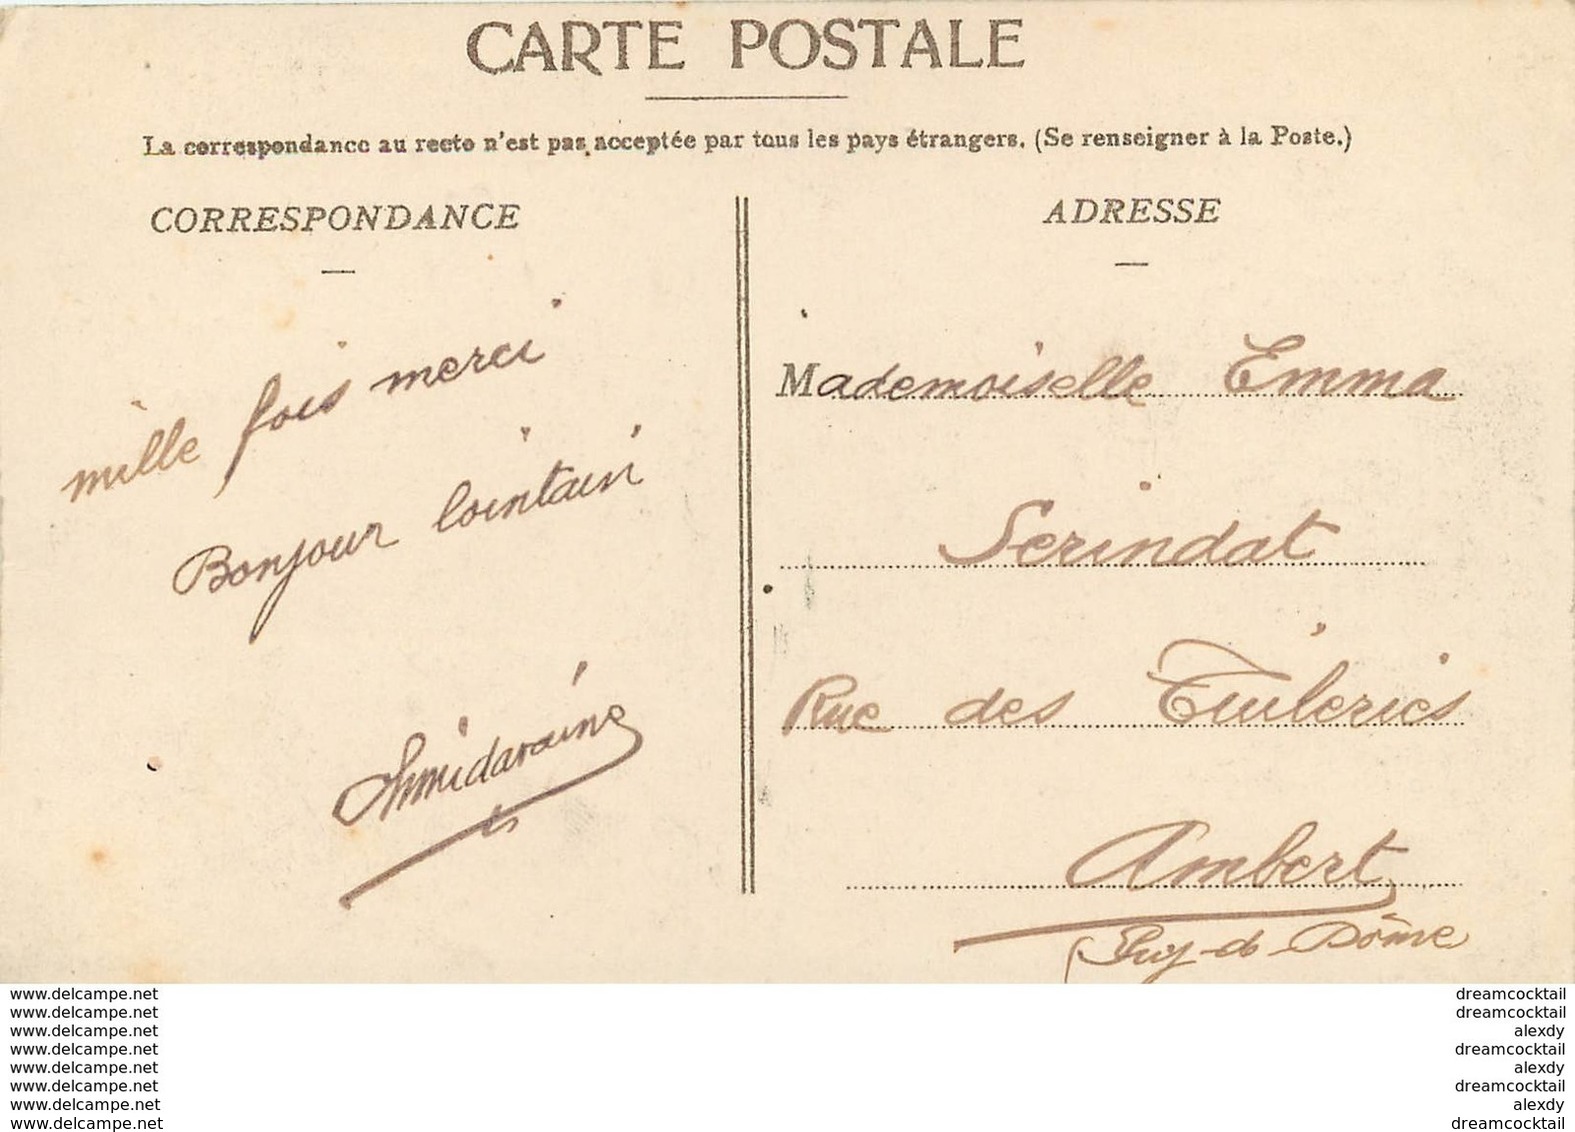 CARTE POSTALE
La correspondance au recto n'est pas acceptée par tous les pays étrangers. (Se renseigner à la Poste.)
CORRESPONDANCE
mille fois merci
Bonjour lointain
ADRESSE
Mademoiselle Emma
Serindat
Rue des Tuileries
Ambert
(Puy-de-Dôme
www.delcampe.net
www.delcampe.net
www.delcampe.net
www.delcampe.net
www.delcampe.net
www.delcampe.net
www.delcampe.net
www.delcampe.net
dreamcocktail
dreamcocktail
alexdy
dreamcocktail
alexdy
dreamcocktail
alexdy
dreamcocktail